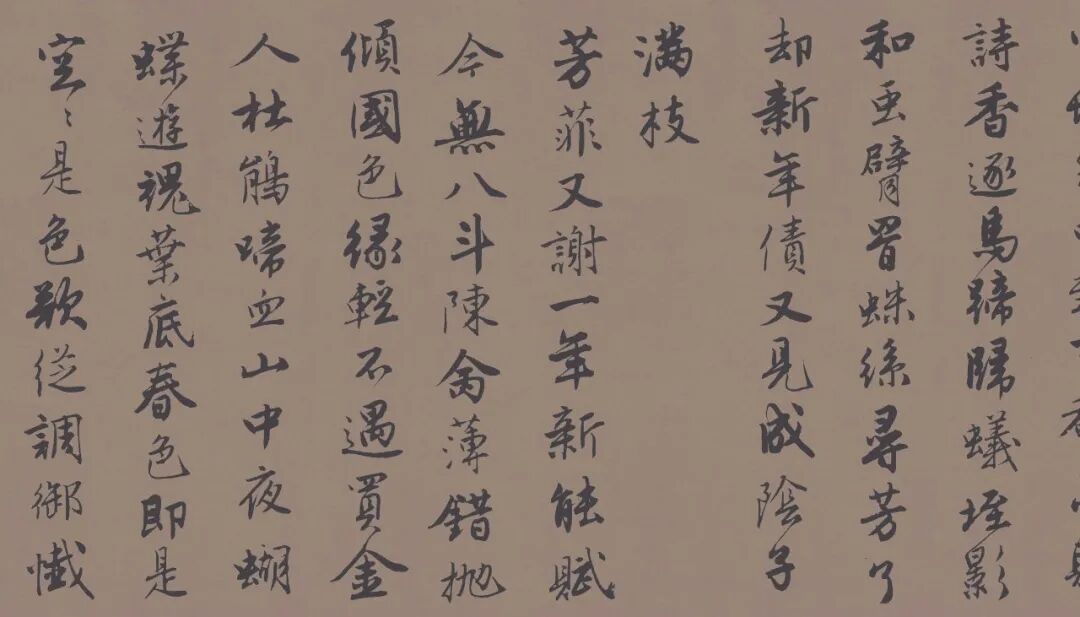 詩香逐馬蹄歸蟻垤影
和虫臂罥蛛絲尋芳了
却新年債又見成陰子
满枝
芳菲又謝一年新能賦
今無八斗陳禽薄錯抛
傾國色緣輕不遇買金
人杜鵑啼血山中夜蝴
蝶遊魂葉底春色即是
空〻是色欲從調御懺